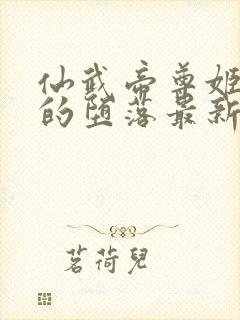 仙武帝尊姬
的堕落最新
茗荷兒